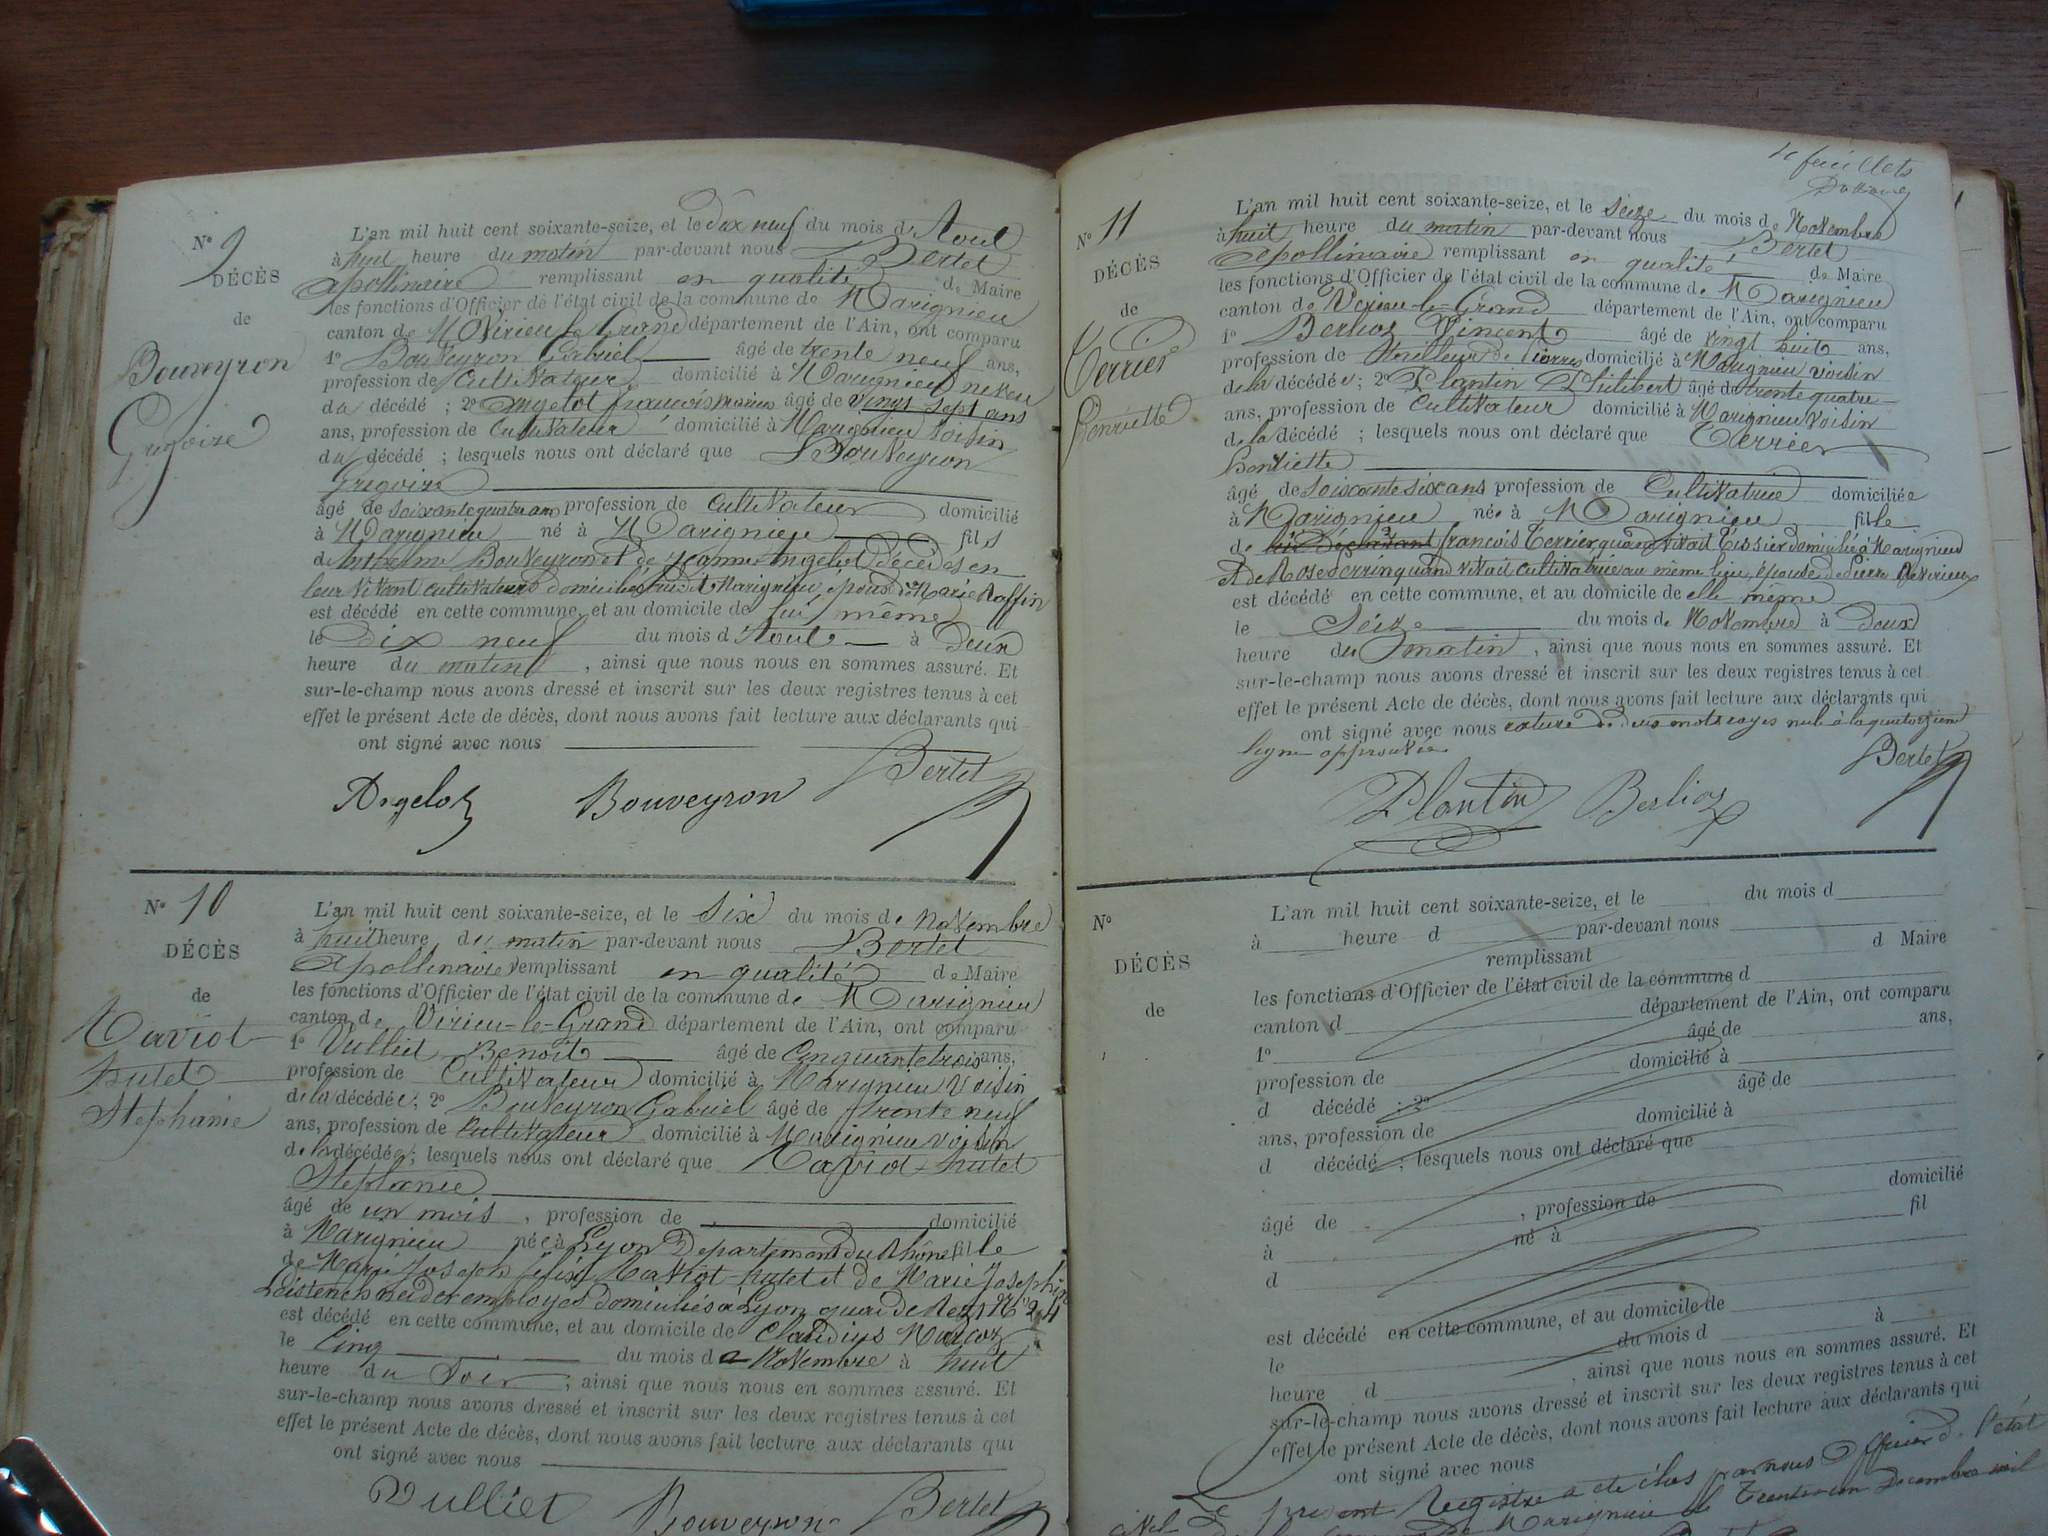 N° 9
DÉCÈS
de
Bouveyron
Grégoire
L'an mil huit cent soixante-seize, et le dix neuf du mois d'Aout
à huit heure du matin par-devant nous Bertet
Apollinaire remplissant en qualité de Maire
les fonctions d'Officier de l'état civil de la commune de Marignieu
canton de Virieu le Grand département de l'Ain, ont comparu
1° Bouveyron Gabriel âgé de trente neuf ans,
profession de Cultivateur domicilié à Marignieu neveu
du décédé ; 2° Angelot françois marius âgé de vingt sept ans
ans, profession de Cultivateur domicilié à Marignieu voisin
du décédé ; lesquels nous ont déclaré que Bouveyron
Grégoire
âgé de soixante quatre ans profession de Cultivateur domicilié
à Marignieu né à Marignieu fils
de Anthelme Bouveyron et de Jeanne Angelot décédés en
leur vivant cultivateurs domiciliés audit Marignieu, époux de Marie Raffin
est décédé en cette commune, et au domicile de lui même
le Dix neuf du mois d'Aout à deux
heure du matin , ainsi que nous nous en sommes assuré. Et
sur-le-champ nous avons dressé et inscrit sur les deux registres tenus à cet
effet le présent Acte de décès, dont nous avons fait lecture aux déclarants qui
ont signé avec nous
Bertet
Angelot Bouveyron
N° 10
DÉCÈS
de
Maviot
hutet
Stéphanie
L'an mil huit cent soixante-seize, et le Six du mois de Novembre
à huit heure du matin par-devant nous Bertet
Apollinaire remplissant en qualité de Maire
les fonctions d'Officier de l'état civil de la commune de Marignieu
canton de Virieu-le-Grand département de l'Ain, ont comparu
1° Vulliet Benoit âgé de Cinquante trois ans,
profession de Cultivateur domicilié à Marignieu voisin
de la décédée ; 2° Bouveyron Gabriel âgé de trente neuf
ans, profession de Cultivateur domicilié à Marignieu voisin
de la décédée ; lesquels nous ont déclaré que Maviot-hutet
Stephanie
âgé de un mois , profession de domicilié
à Marignieu née à Lyon Departement du Rhône fille
de Marie Joseph félix Maviot-hutet et de Marie Josephine
employés domiciliés à Lyon quai de Retz N° 24
est décédé en cette commune, et au domicile de Claudius
le Cinq du mois de Novembre à huit
heure du Soir ; ainsi que nous nous en sommes assuré. Et
sur-le-champ nous avons dressé et inscrit sur les deux registres tenus à cet
effet le présent Acte de décès, dont nous avons fait lecture aux déclarants qui
ont signé avec nous
Vulliet Bouveyron Bertet
feuillets
N° 11
DÉCÈS
de
Terrier
Henriette
L'an mil huit cent soixante-seize, et le seize du mois de Novembre
à huit heure du matin par-devant nous Bertet
Apollinaire remplissant en qualité de Maire
les fonctions d'Officier de l'état civil de la commune de Marignieu
canton de Virieu-le-Grand département de l'Ain, ont comparu
1° Berlioz Vincent âgé de vingt huit ans,
profession de tailleur de Pierres domicilié à Marignieu voisin
de la décédée ; 2° Plantin Philibert âgé de trente quatre
ans, profession de Cultivateur domicilié à Marignieu voisin
de la décédé ; lesquels nous ont déclaré que Terrier
Henriette
âgé de soixante six ans profession de Cultivatrice domiciliée
à Marignieu née à Marignieu fille
de françois Terrier quand vivait Tissier domicilié à Marignieu
et de Rose Perrin quand vivait cultivatrice au même lieu, épouse de Pierre
est décédé en cette commune, et au domicile de elle même
le Seize du mois de Novembre à deux
heure du matin , ainsi que nous nous en sommes assuré. Et
sur-le-champ nous avons dressé et inscrit sur les deux registres tenus à cet
effet le présent Acte de décès, dont nous avons fait lecture aux déclarants qui
ont signé avec nous rature de deux mots rayés nuls à la quatorzième
ligne approuvée
Bertet
Plantin Berlioz
N°
DÉCÈS
de
L'an mil huit cent soixante-seize, et le du mois d
à heure d par-devant nous
remplissant d Maire
les fonctions d'Officier de l'état civil de la commune d
canton d département de l'Ain, ont comparu
1° âgé de ans,
profession de domicilié à
d décédé ; 2° âgé de
ans, profession de domicilié à
d décédé ; lesquels nous ont déclaré que
âgé de , profession de domicilié
à né à fil
d
est décédé en cette commune, et au domicile de
le du mois d à
heure d , ainsi que nous nous en sommes assuré. Et
sur-le-champ nous avons dressé et inscrit sur les deux registres tenus à cet
effet le présent Acte de décès, dont nous avons fait lecture aux déclarants qui
ont signé avec nous
Le présent Registre a été clos par nous Officier de l'état
Marignieu le Trente un Decembre mil